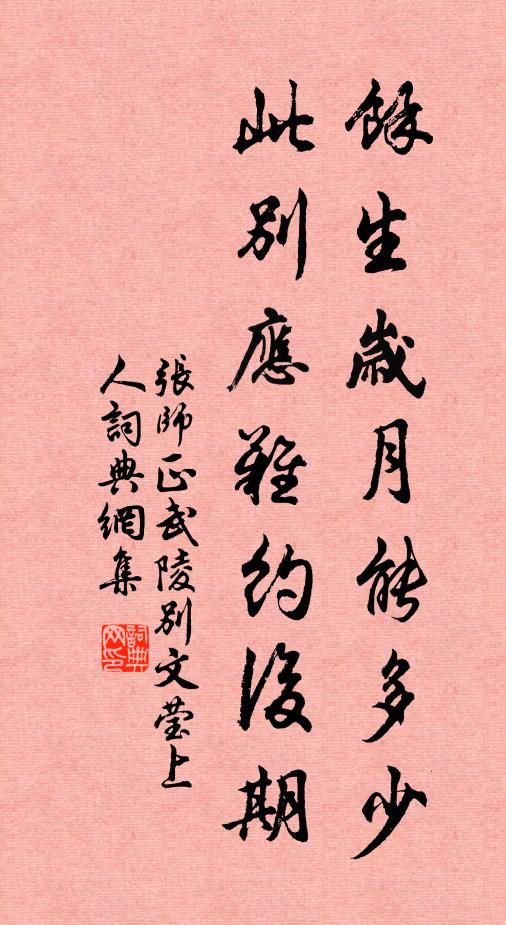 餘生歲月能多少
此別應難約後期
張師正武陵別文瑩上
人詞典網集
詞典网印